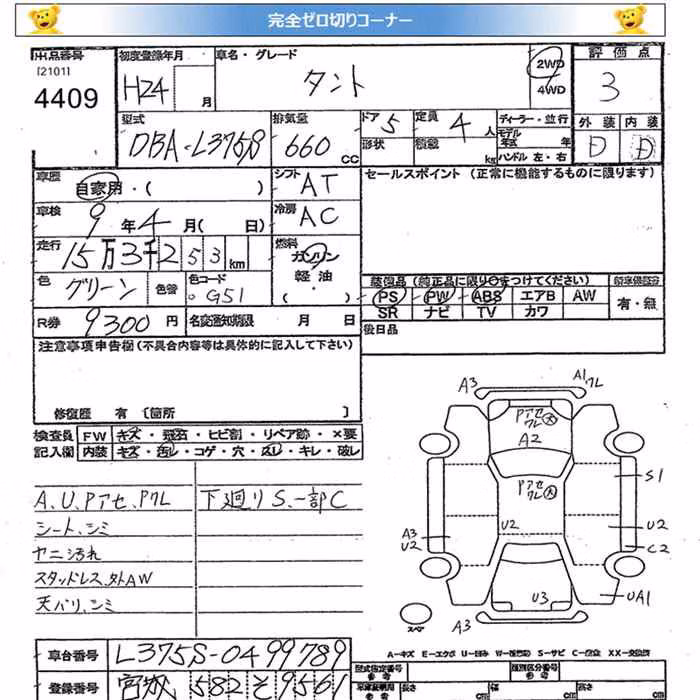 完全ゼロ切りコーナー
出品番号 初度登録年月 車名・グレード 2WD 評価点
[2101] H24 月 タント 4WD 3
4409
型式 排気量 ドア 5 定員 4 人 ディーラー・並行 外装 内装
DBA-L375S 660 CC 形状 積載 kg モデル年式 年 ハンドル 左・右 D D
車歴 自家用・( ) シフト AT セールスポイント (正常に機能するものに限ります)
車検 9年4月( 日) 冷房 AC
走行 15万3千253km 燃料 ガソリン
軽油・( )
色 グリーン 色替 色コード G51 装備品 (純正品に限り○をつけてください)
PS PW ABS エアB AW 有・無
SR ナビ TV カワ
R券 9300円 名変通知期限 月 日 後日品
注意事項申告欄 (不具合内容等は具体的に記入して下さい)
修復歴 有 〔箇所 〕
検査員 FW キズ・飛石・ヒビ割・リペア跡・×要
記入欄 内装 キズ・汚レ・コゲ・穴・スレ・キレ・破レ
A、U、Pアセ、Pクレ 下廻りS、一部C
シート、シミ
ヤニ汚れ
スタッドレス、外AW
天バリ、シミ
A3 A1,クレ
Pアセ クレ大
A2
Pアセ クレ大
S1
U2 U2
A3 U2 C2
U3 UA1
スペア A3
A-キズ E-エクボ U-凹み W-補修跡 S-サビ C-腐食 XX-交換済
車台番号 L375S-0499789 型式指定番号 参考 類別区分番号 参考
登録番号 宮城 582 そ 9561 長さ cm 幅 cm 高さ cm